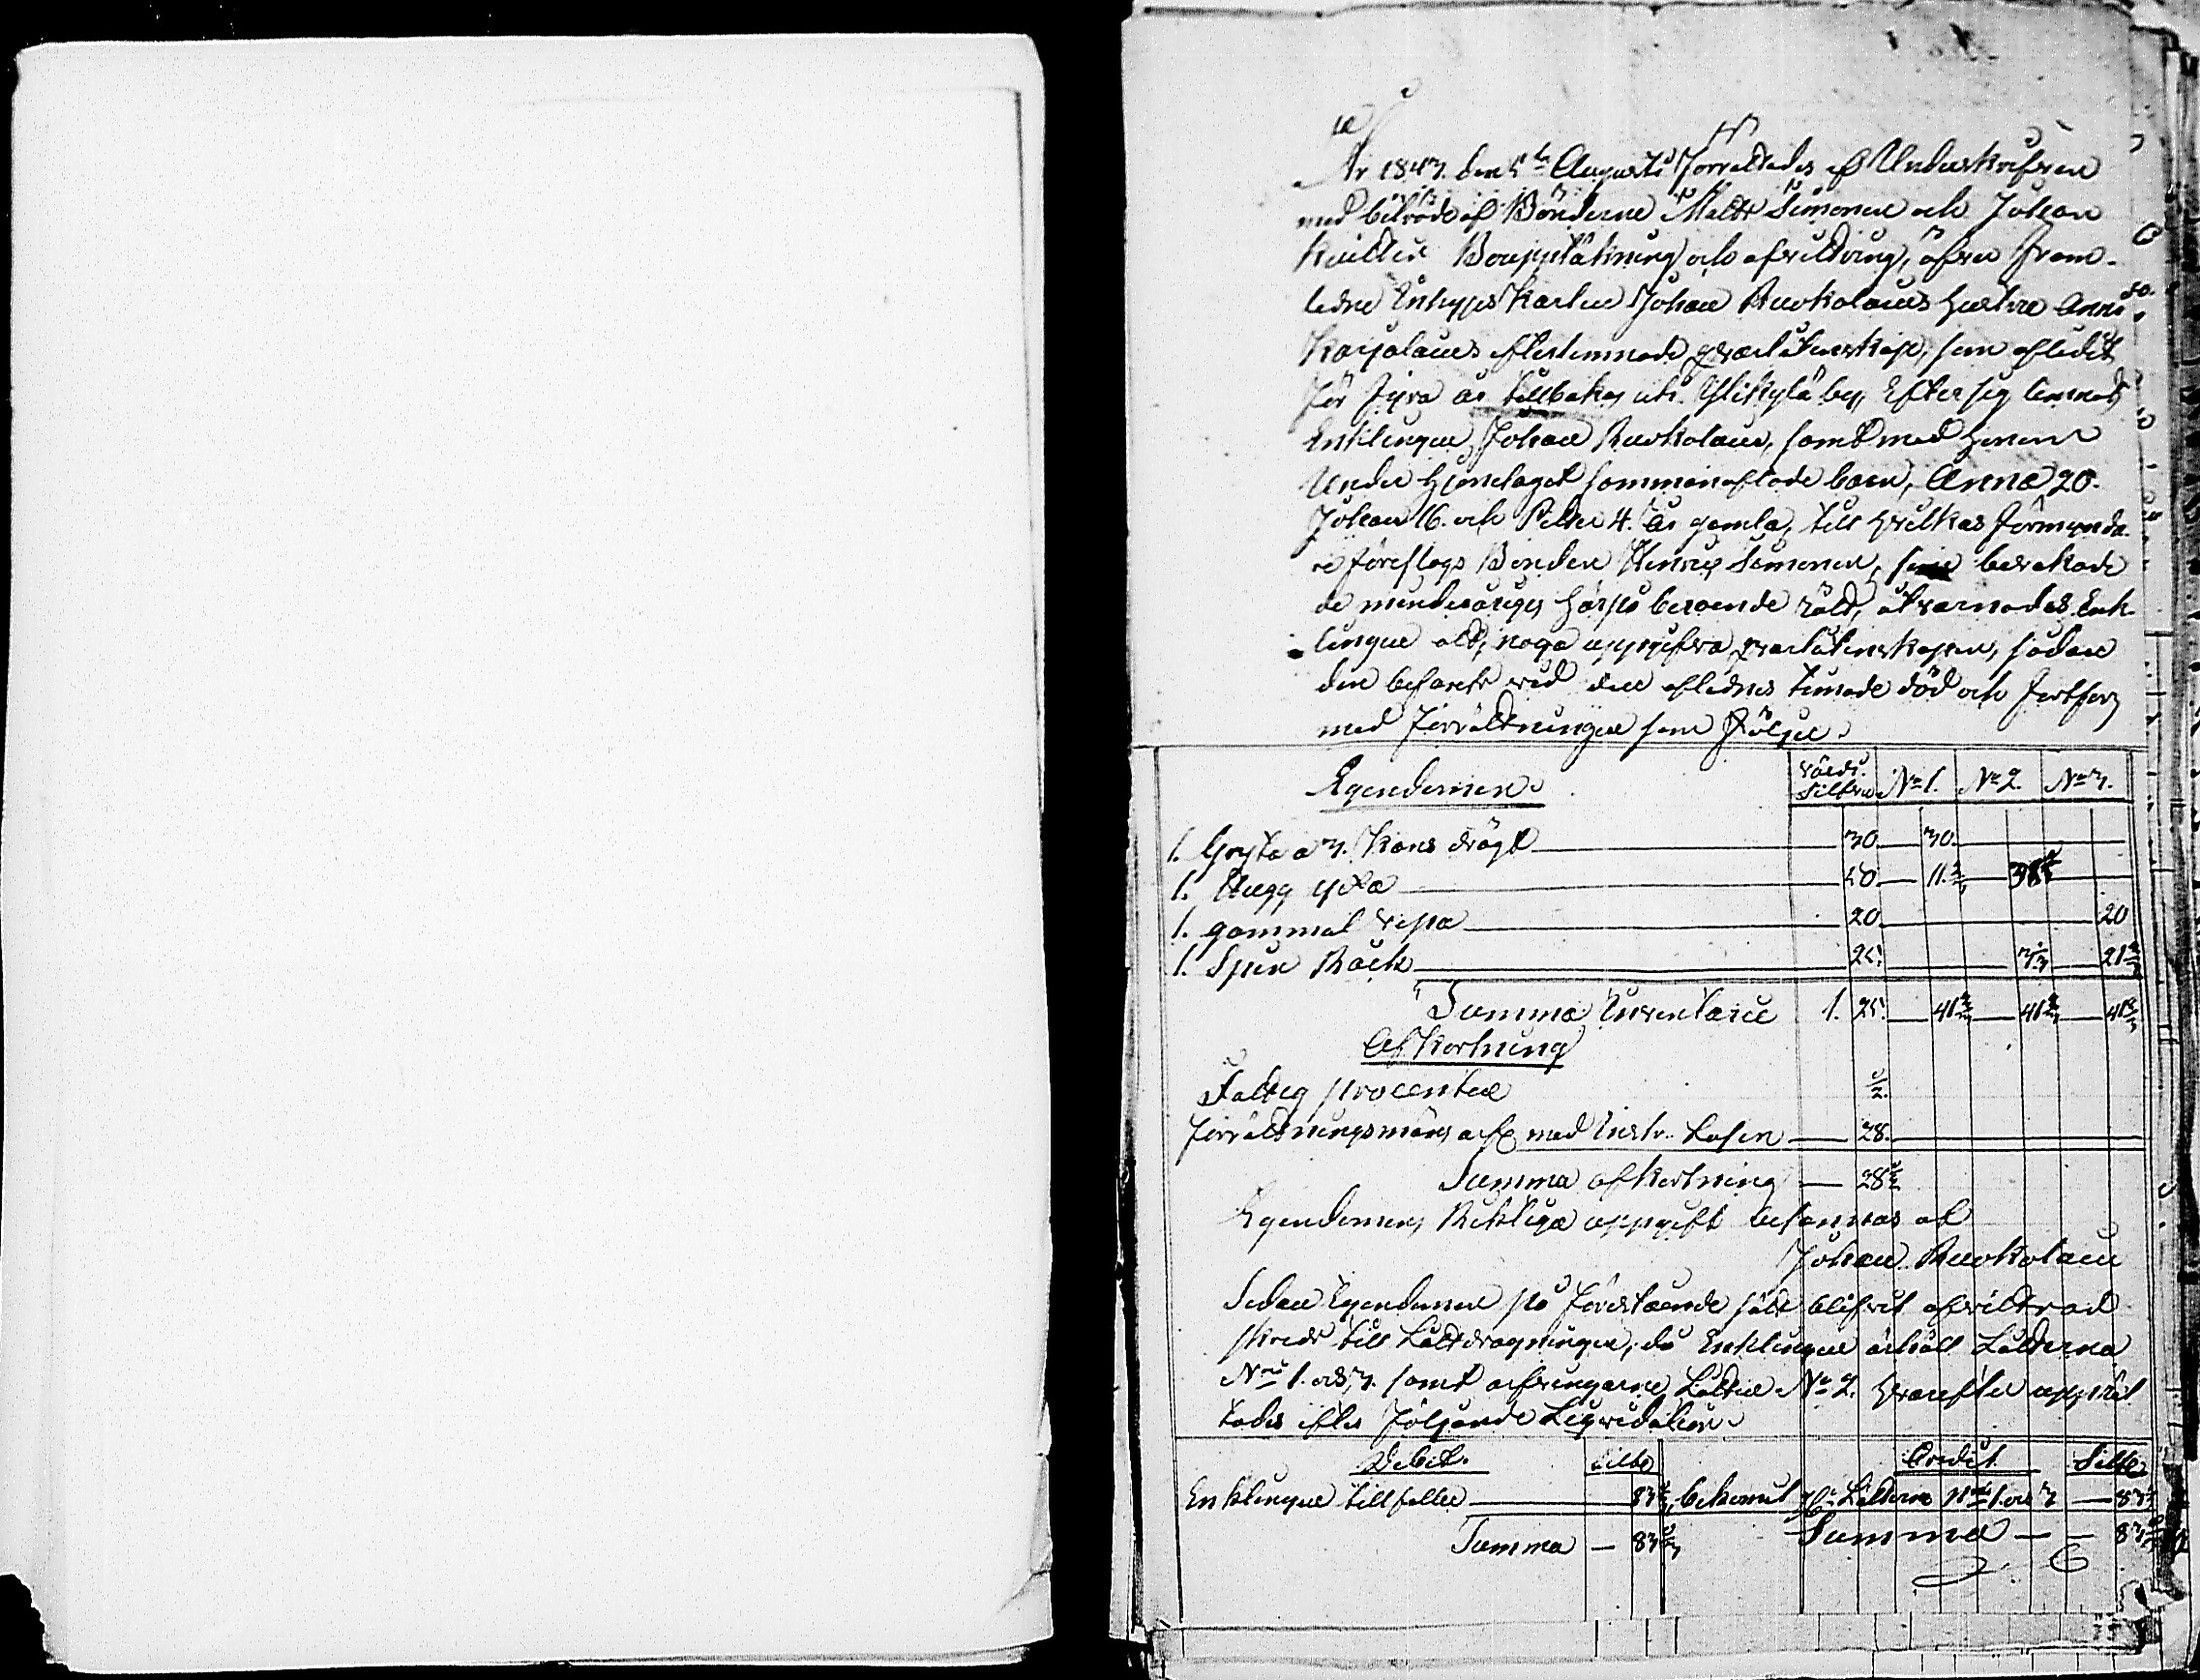 År 1843. den 5te Augusti Förrättades af Underskrefven
med biträde af Bönderne Matts Simonen och Johan
Bouppteckning och afvittring, öfver fram-
ledne Inhyses Karlen Johan Ruokolaines hustru Anna
Karjolaines efterlemnade qvarlåtenskap, som afledit
för fyra år tillbaka uti Ylikylä by, Efter sig lemnat
Enklingen Johan Ruokolain, samt med henne
under hjonelaget sammanaflade barn, Anna 20.
Johan 16. och Petter 4. år gamla, till hvilkas förmynda-
re föreslogs Bonden Henrig Simonen, som bevakade
de minderåriges härpå beroende rätt, åtvarnades Enk-
lingen att, noga uppgifva qvarlåtenskapen, sådan
den befants vid den aflednes timade död och fortfors
med förrättningen som följer.
Egendomen. Värde Silfver No 1. No 2. No 3.
1. Gryta a 3. Kans drägt 30. 30.
1. Hugg yxa 50. 11 2/3 38 1/3
1. gammal 20. 20
1. Spin Rock 25. 3 1/3 21 2/3
Summa Inventarii 1. 25. 41 2/3 41 2/3 41 2/3
Afkortning
Fattig procenten 1/2.
Förrättningsmäns arf. med Instr. Lösen 28.
Summa afkortning 28 1/2
Egendomens Riktiga uppgift besannas af
Johan Ruokolain
Sedan Egendomen på förestående sätt blifvit afvittrad
skreds till Lottdragningen, då Enklingen erhöll Lotterna
No 1. och 3. samt arfvingarne Lotten No 2. hvarefter upprät-
tades efter följande Liqvidation.
Debet. Silfv Credit Silfv
Enklingen tillfaller 83 1/3 bekomit pr Lotterne No 1. och 3 83 1/3
Summa 83 1/3 Summa 83 1/3